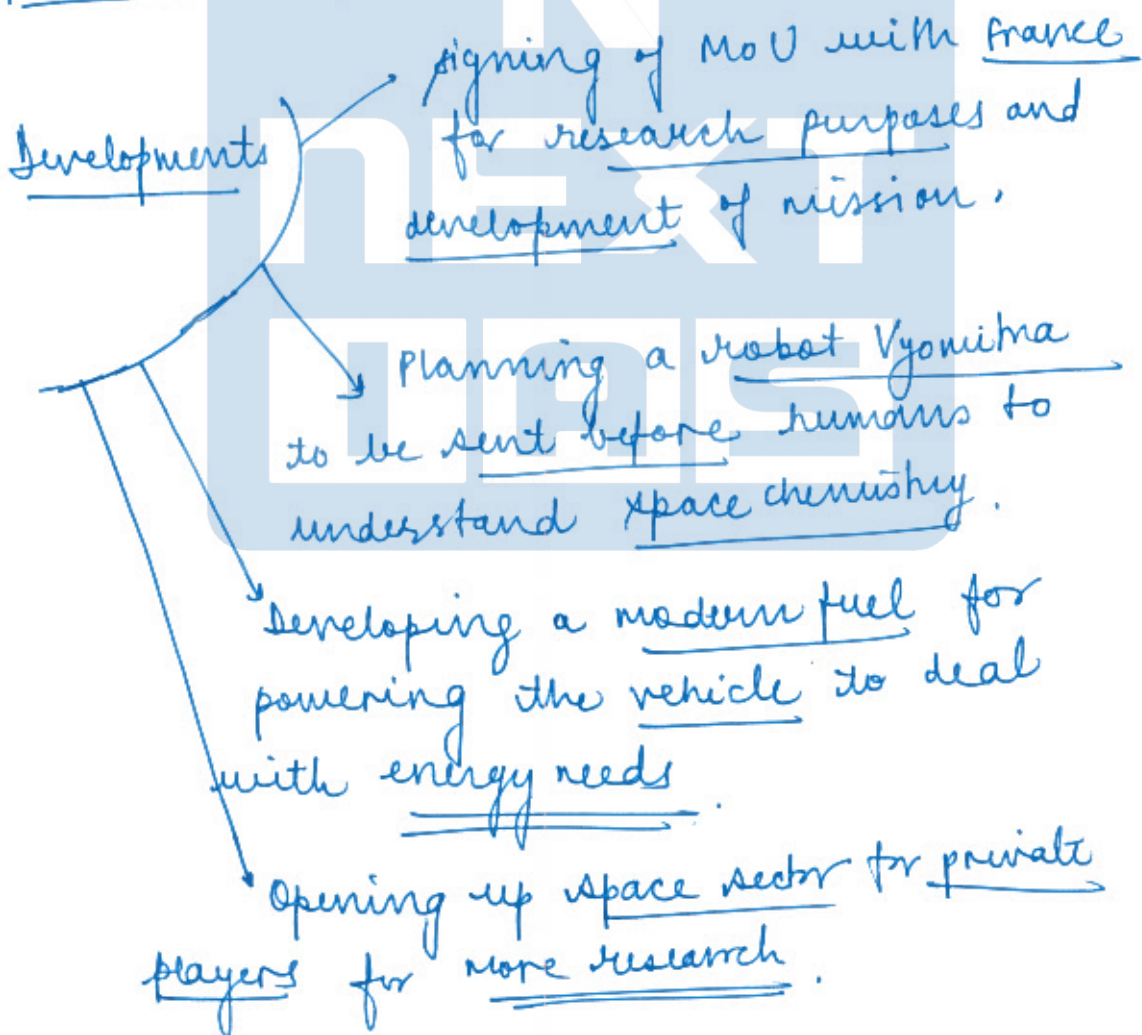 Developments
signing of MoU with France
for research purposes and
development of mission.
Planning a robot Vyomitra
to be sent before humans to
understand space chemistry.
Developing a modern fuel for
powering the vehicle to deal
with energy needs.
Opening up space sector for private
players for more research.
NEXT
IAS